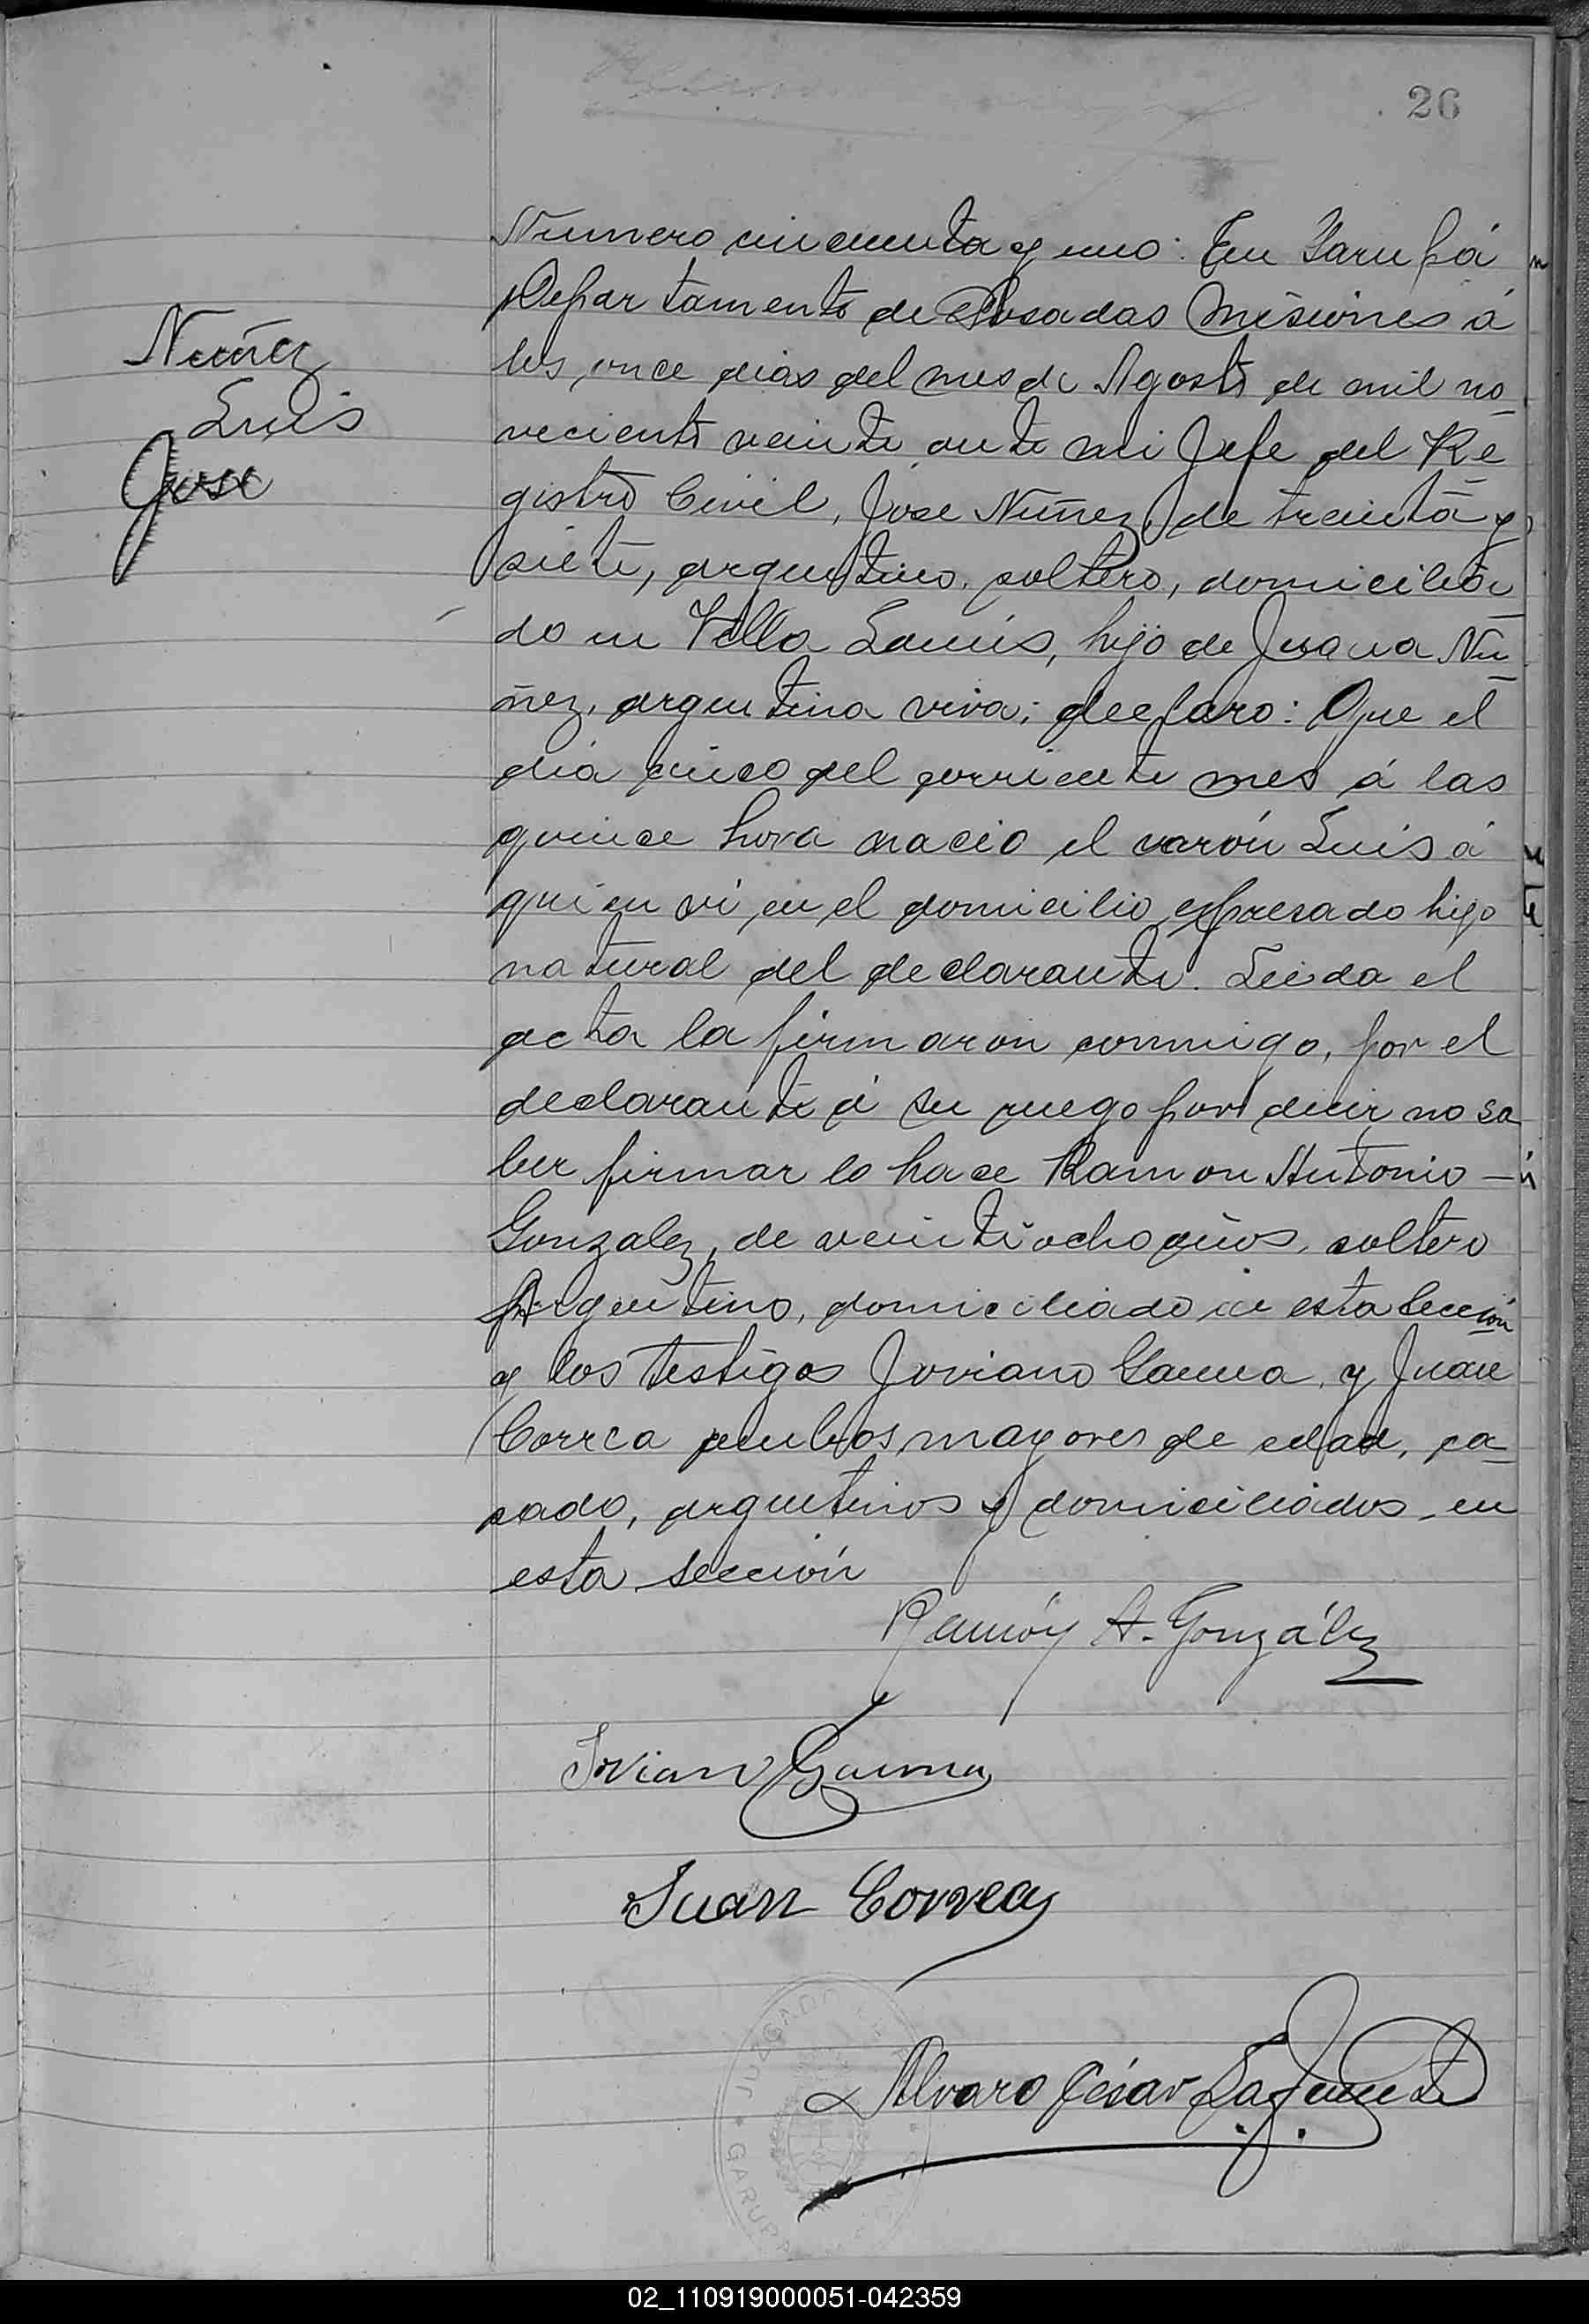 26
Numero cincuenta y uno: En Garupá
Departamento de Posadas Misiones á
los once dias del mes de Agosto de mil no_
veciento veinte ante mi Jefe del Re_
gistro Civil, Jose Nuñez, de treinta y
siete, argentino, soltero, domicilia_
do en Villa Lanús, hijo de Juana Nu_
ñez, argentina viva; declaro: Que el
dia cinco del corriente mes á las
quince hora nacio el varón Luis á
quien vi en el domicilio expresado hijo
natural del declarante. Leida el
acta la firmaron conmigo, por el
declarante á su ruego por decir no sa
ber firmar lo hace Ramon Antonio —
Gonzalez, de veintiocho años, soltero
Argentino, domiciliado en esta sección
y los testigos Joviano Gauna, y Juan
Correa ambos mayores de edad, ca_
sado, argentinos y domiciliados en
esta sección
Nuñez
Luis
Jose
Ramón A. González
Jovian Gauna
Juan Correa
Alvaro César Lafuente
JUZGADO
GARUPA
02_110919000051-042359